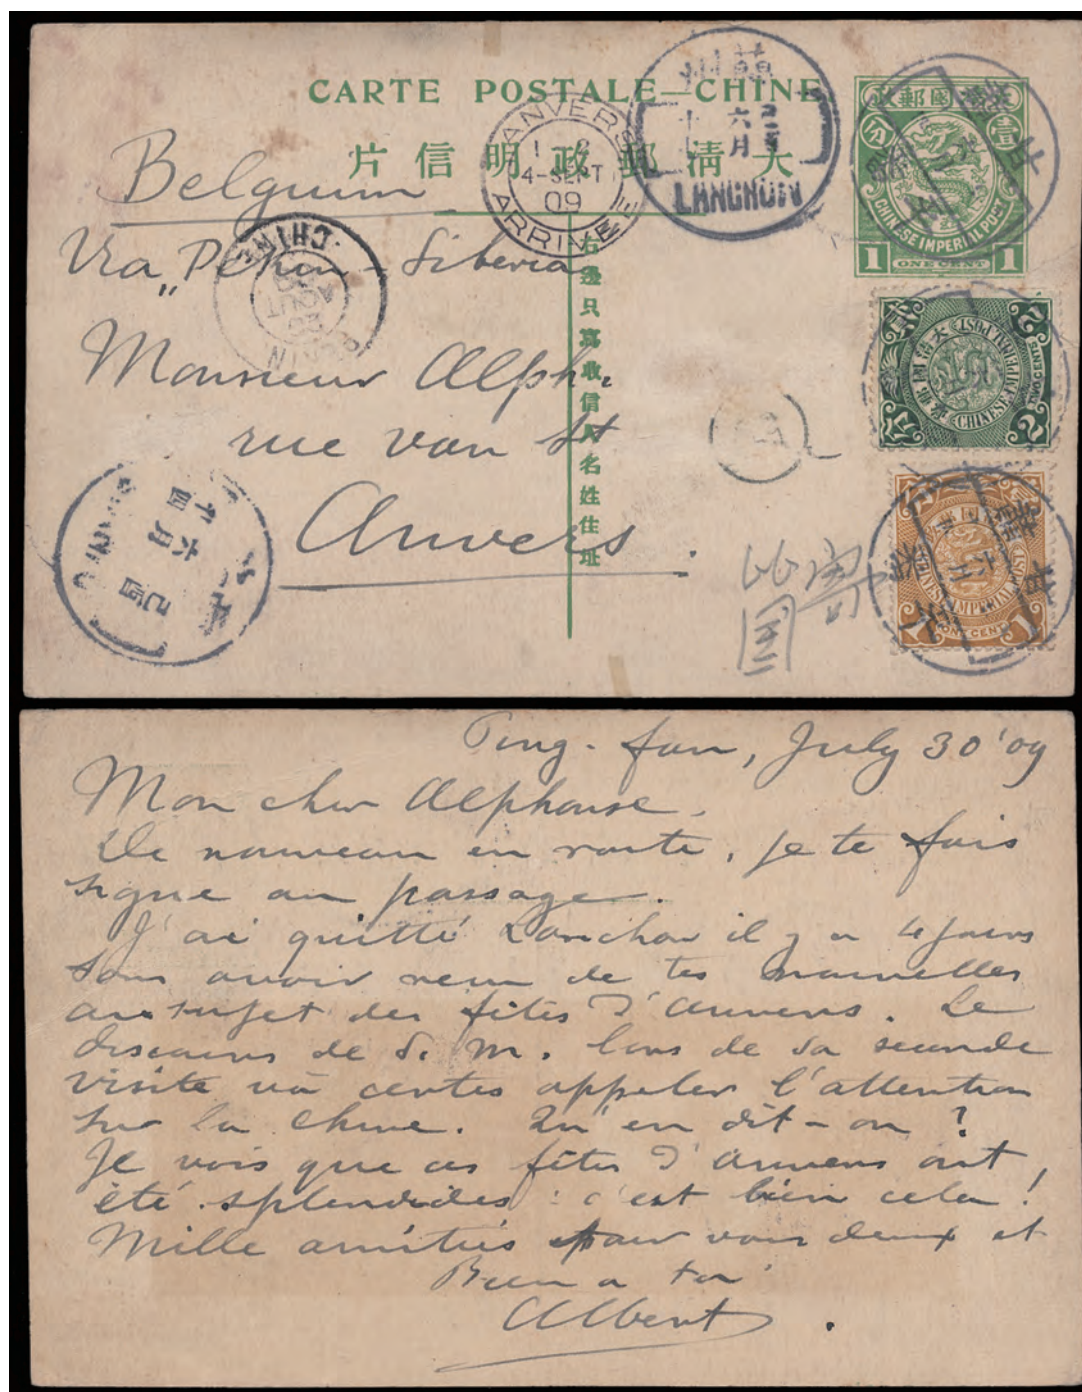 CARTE POSTALE—CHINE
大清郵政明信片
右邊只寫收信人名姓住址
大清國郵政
壹
分
CHINESE IMPERIAL POST
1 ONE CENT 1
大清國郵政
CHINESE IMPERIAL POST
2 TWO CENTS 2
CHINESE IMPERIAL POST
1 ONE CENT 1
ANVERS
4-SEPT
09
ARRIVEE
州蘭
六月
LANCHOW
CHINE
PEKIN
六月
Belgium
Via „Pekin - Siberia
Monsieur Alph.
rue van
Anvers.
比國
Ping-fan, July 30 '09
Mon cher Alphonse.
De nouveau en route, je te fais
signe au passage.
J'ai quitté Lanchow il y a 4 jours
sans avoir reçu de tes nouvelles
au sujet des fêtes d'Anvers. Le
discours de S. M. lors de sa seconde
visite va certes appeler l'attention
sur la Chine. Qu'en dit-on ?
Je vois que ces fêtes d'Anvers ont
été splendides : c'est bien cela !
Mille amitiés pour vous deux et
Bien à toi
Albert.